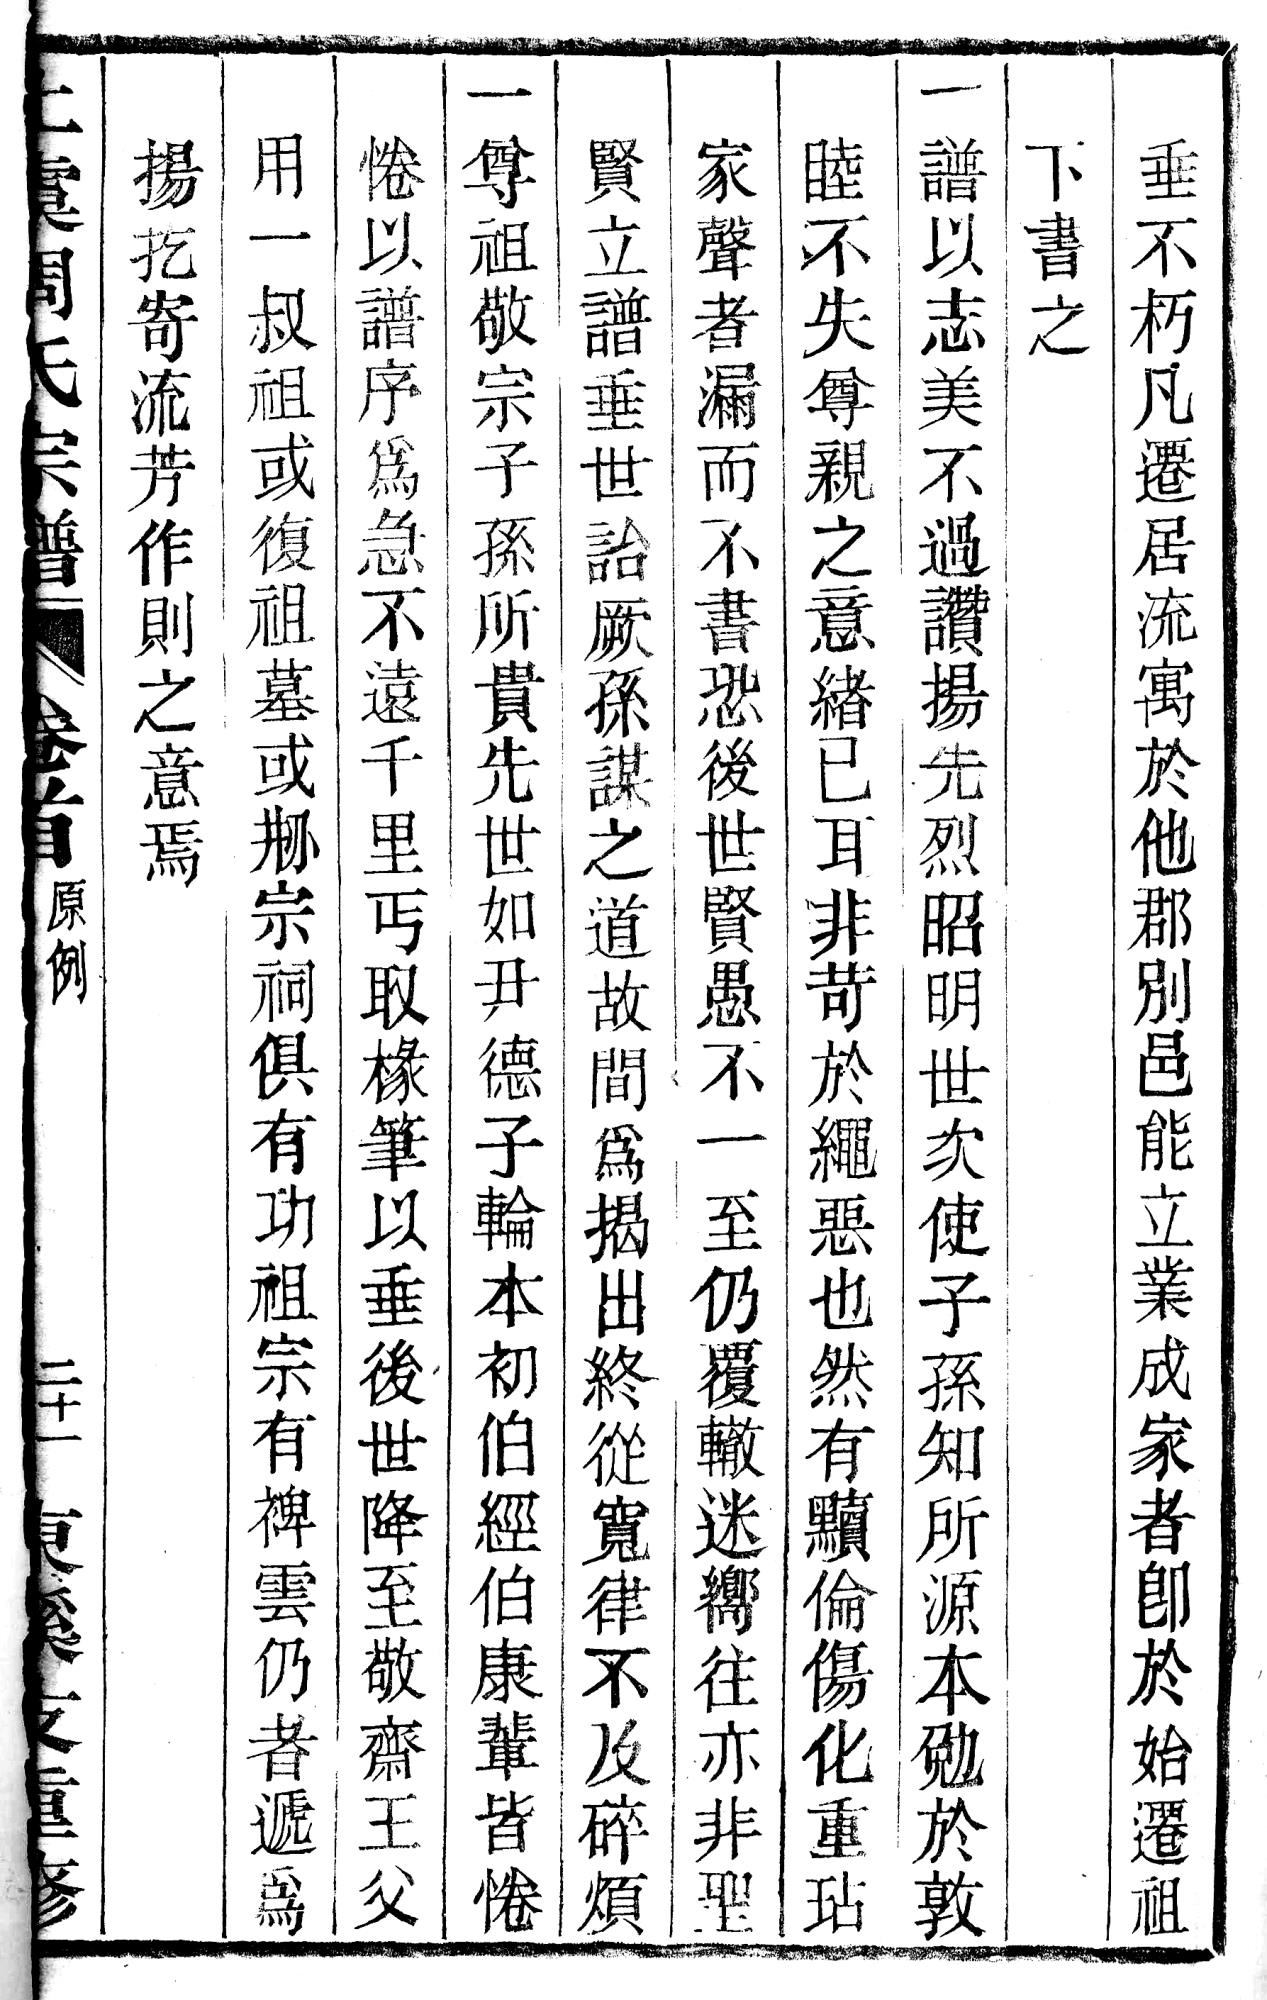 垂不朽凡遷居流寓於他郡別邑能立業成家者卽於始遷祖
下書之
一譜以志美不過讚揚先烈昭明世次使子孫知所源本勉於敦
睦不失尊親之意緒已耳非苛於繩惡也然有黷倫傷化重玷
家聲者漏而不書恐後世賢愚不一至仍覆轍迷嚮往亦非聖
賢立譜垂世詒厥孫謀之道故間爲揭出終從寬律不及碎煩
一尊祖敬宗子孫所貴先世如丹德子輪本初伯經伯康輩皆惓
惓以譜序爲急不遠千里丐取椽筆以垂後世降至敬齋王父
用一叔祖或復祖墓或剏宗祠俱有功祖宗有裨雲仍者遞爲
揚扢寄流芳作則之意焉
上虞周氏宗譜 卷首 原例 二十一 東溪支重修